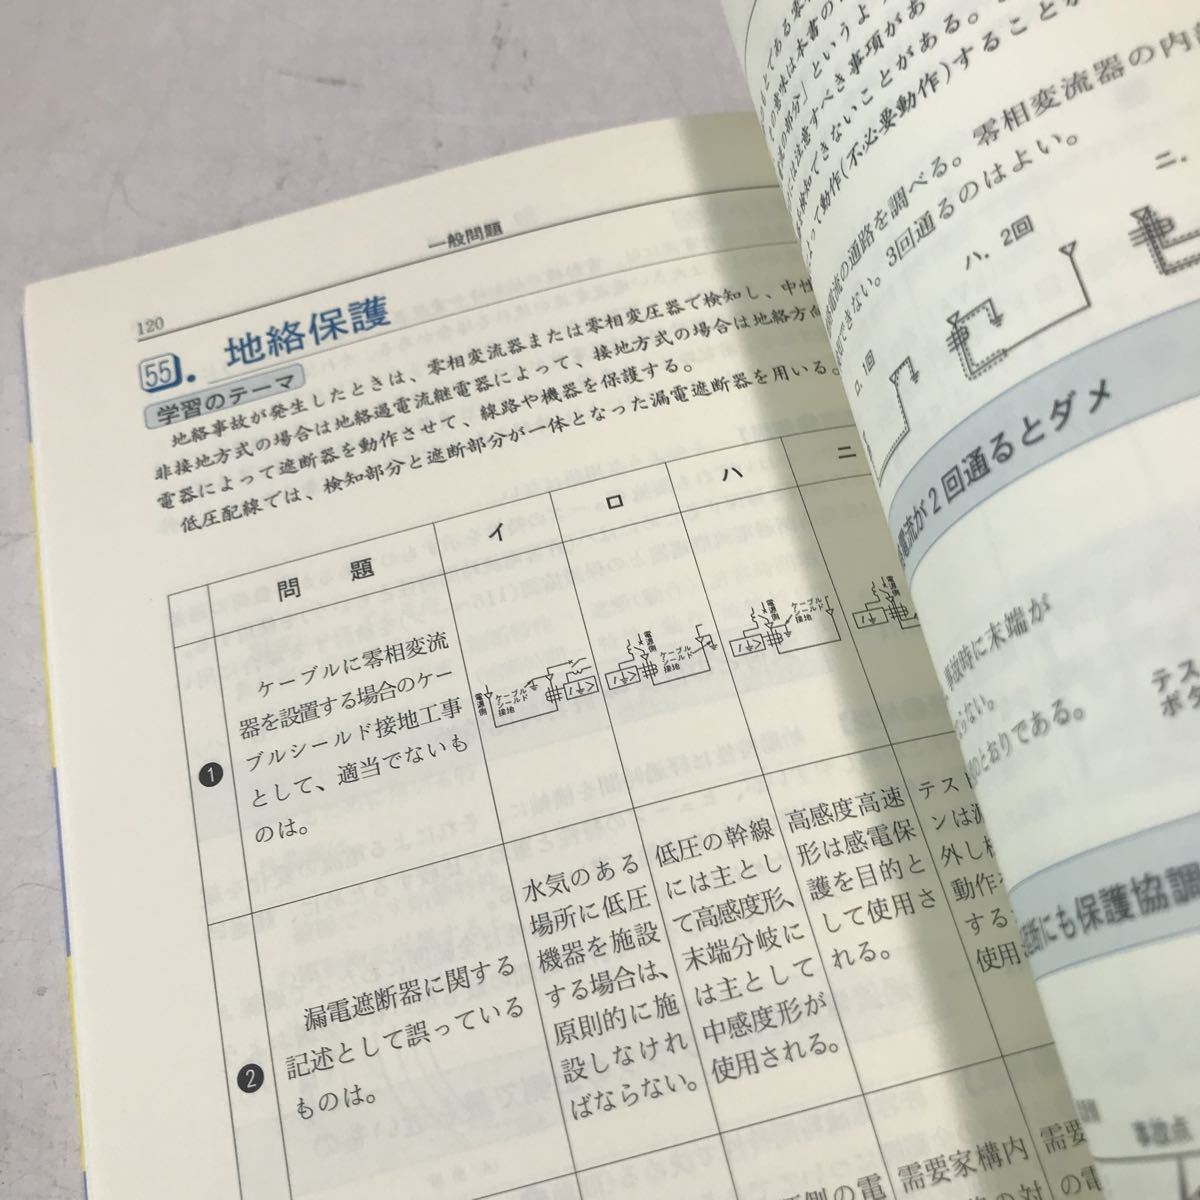 120
一般問題
55. 地絡保護
学習のテーマ
地絡事故が発生したときは、零相変流器または零相変圧器で検知し、中性
非接地方式の場合は地絡過電流継電器によって、接地方式の場合は地絡方向
電器によって遮断器を動作させて、線路や機器を保護する。
低圧配線では、検知部分と遮断部分が一体となった漏電遮断器を用いる。
問題
イ
ロ
ハ
ニ
1
ケーブルに零相変流
器を設置する場合のケー
ブルシールド接地工事
として、適当でないも
のは。
電源側
ケーブル
シールド
接地
I⏚>
電源側
ケーブル
シールド
接地
電源側
ケーブル
シールド
接地
電源側
2
漏電遮断器に関する
記述として誤っている
ものは。
水気のある
場所に低圧
機器を施設
する場合は、
原則的に施
設しなけれ
ばならない。
低圧の幹線
には主とし
て高感度形、
末端分岐に
は主として
中感度形が
使用される。
高感度高速
形は感電保
護を目的と
して使用さ
れる。
テスト
ンは漏
外し
動作
する
使用
側の電
需要家構内
の対
需要
の電
というよう
には注意すべき事項があ
検知できないことがある。
よって動作(不必要動作)することが
電流の通路を調べる。零相変流器の内部
できない。3回通るのはよい。
ロ. 1回
ハ. 2回
ニ.
電流が2回通るとダメ
事故時に末端が
らない。
のとおりである。
テス
ボタ
にも保護協調
事故点